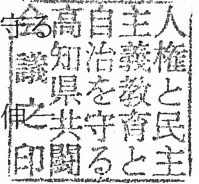 人権と民主
主義教育と
自治を守る
高知県共闘
会議之印
守る
伸